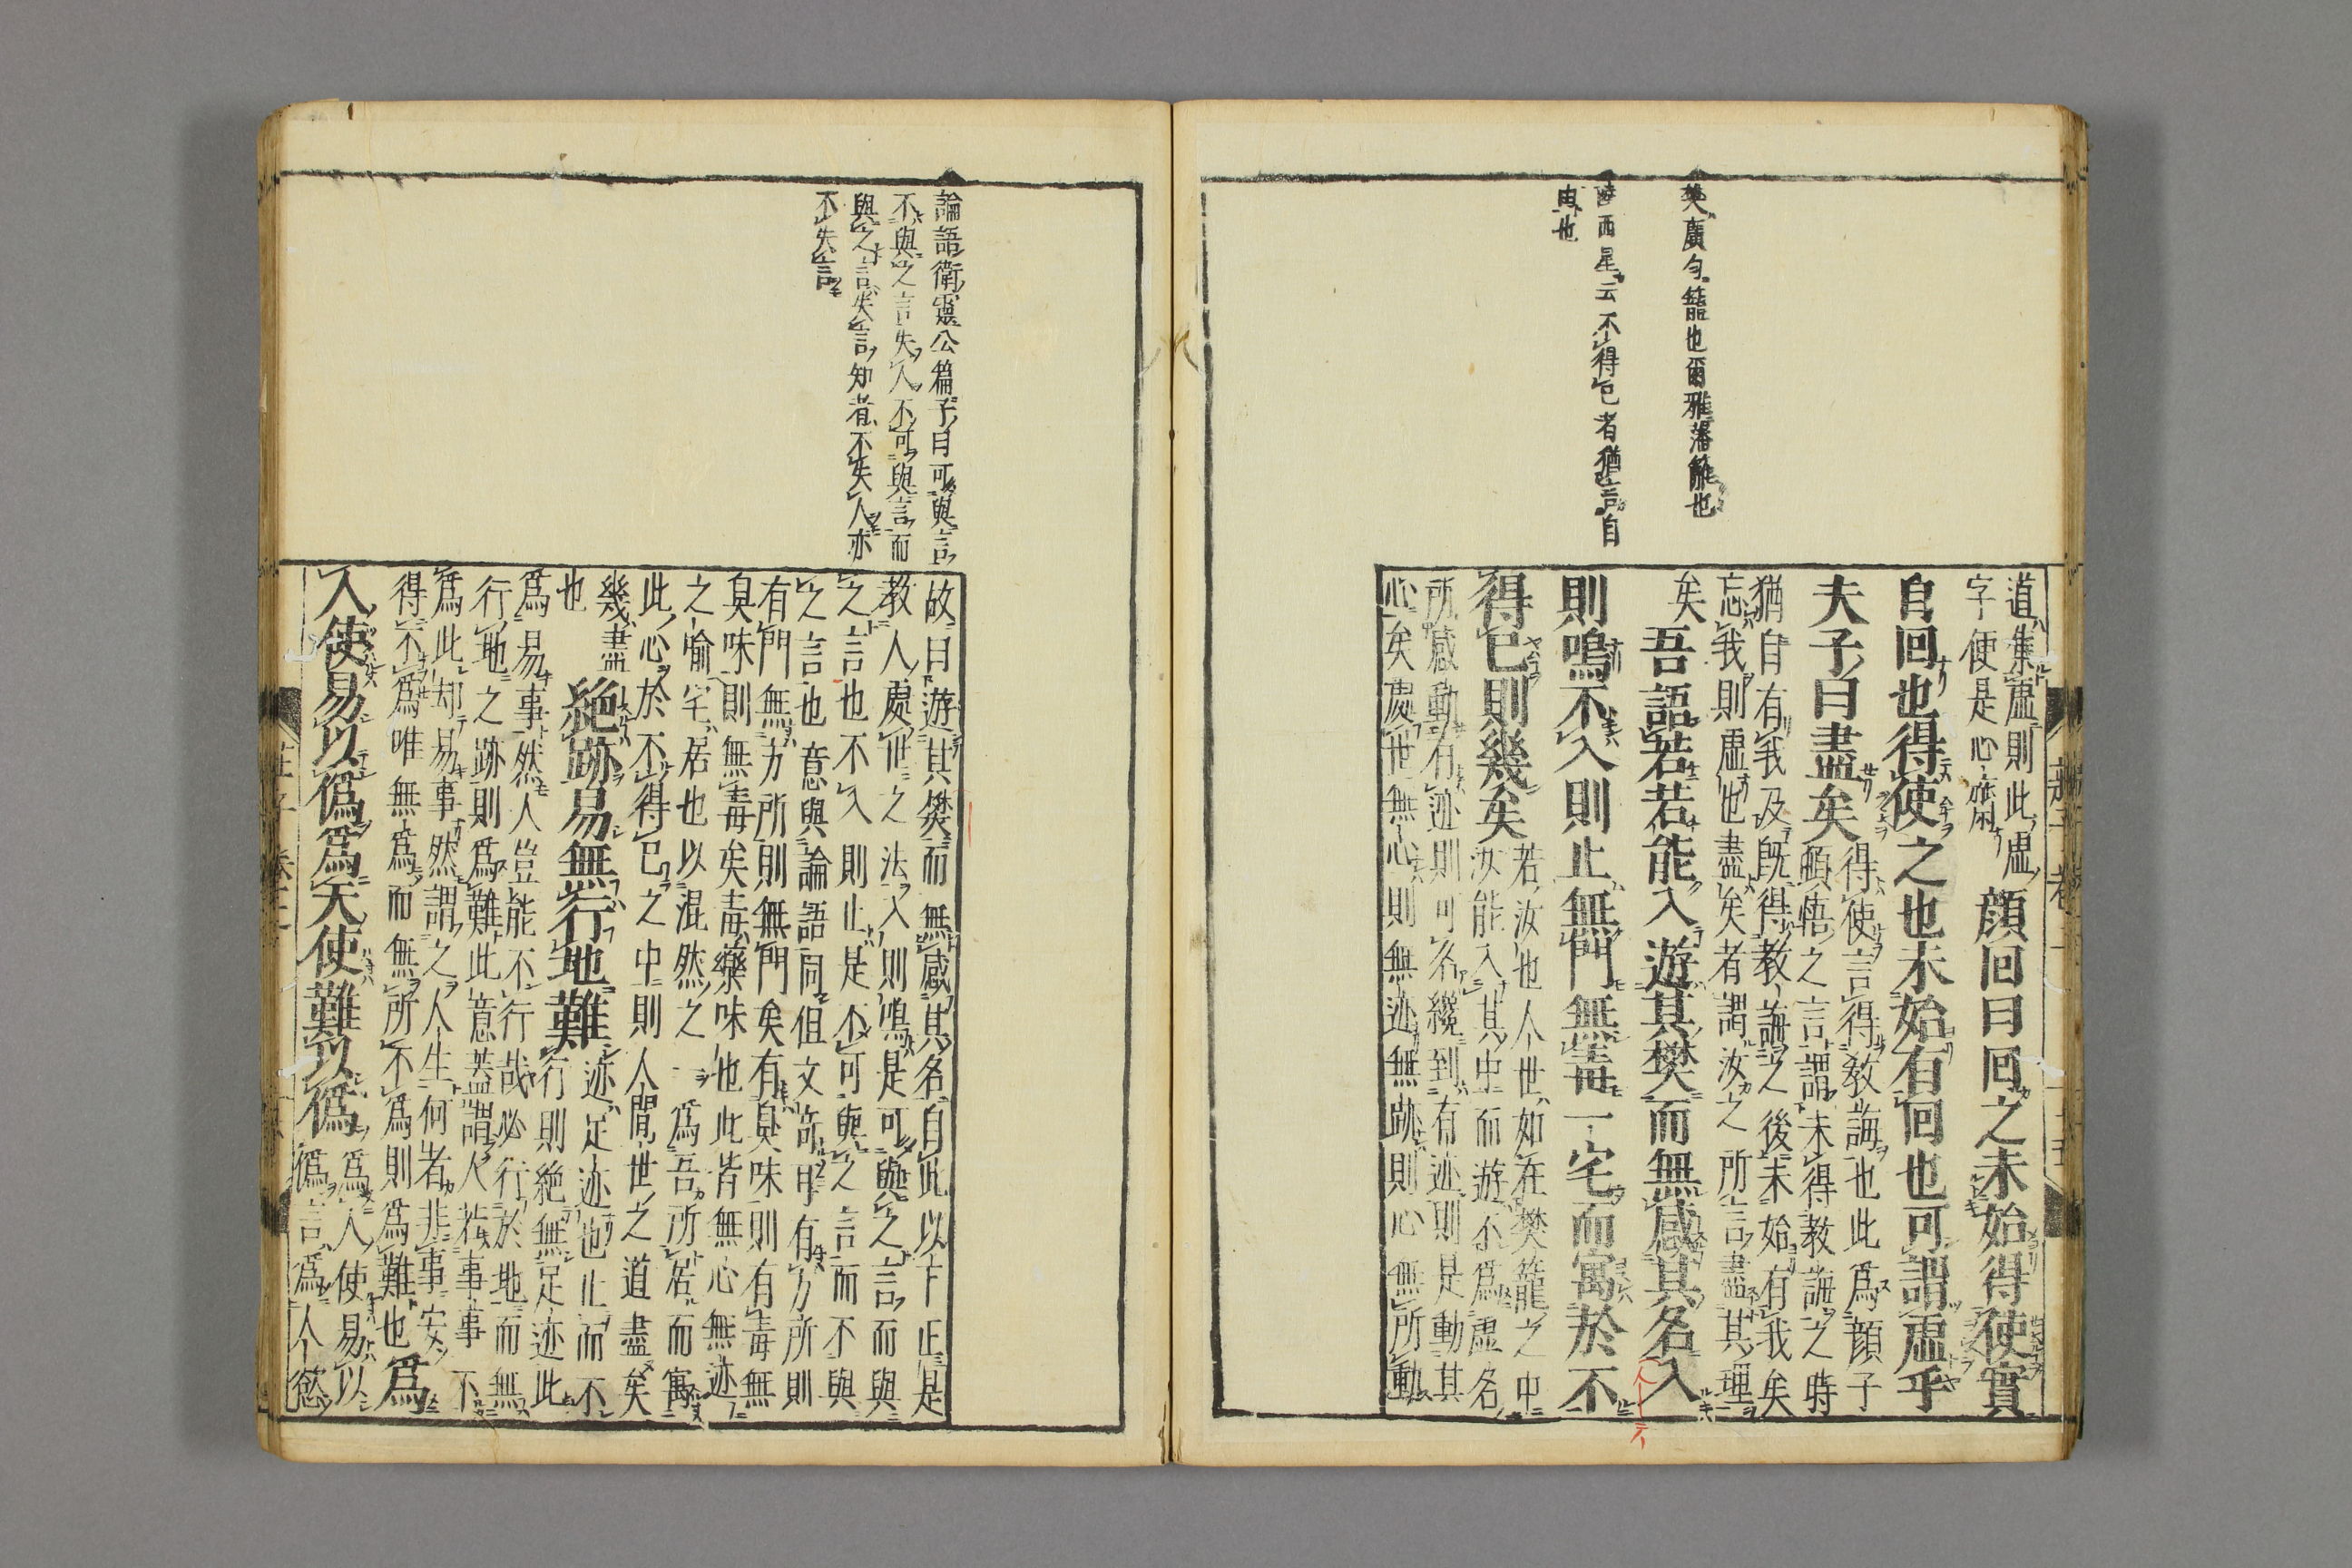 樊廣勻籠也爾雅藩籬也
陸西星云不得已者猶言自
由也
道集虛則此虛
字便是心齋
顔回曰回之未始得使實
自回也得使之也未始有回也可謂虛乎
夫子曰盡矣
得使言得教誨也此爲顔子
頓悟之言謂未得教誨之時
猶自有我及既得教誨之後未始有我矣
忘我則虛也盡矣者謂汝之所言盡其理
矣
吾語若若能入遊其樊而無感其名入
則鳴不入則止無門無毒一宅而寓於不
得已則幾矣
若汝也人世如在樊籠之中
汝能入其中而遊不爲虛名
所感動有迹則可名纔到有迹則是動其
心矣處世無心則無迹無跡則心無所動
論語衛靈公篇子曰可與言
不與之言失人不可與言而
與之言失言知者不失人亦
不失言
故曰遊其樊而無感其名自此以下正是
教人處世之法入則鳴是可與之言而與
之言也不入則止是不可與之言而不與
之言也意與論語同但文奇耳有方所則
有門無方所則無門矣有臭味則有毒無
臭味則無毒矣毒藥味也此皆無心無迹
之喻宅居也以混然之一爲吾所居而寓
此心於不得已之中則人間世之道盡矣
幾盡
也
絶跡易無行地難
迹足迹也止而不
行則絶無足迹此
爲易事然人豈能不行哉必行於地而無
行地之跡則爲難此意蓋謂人若事事不
爲此却易事然謂之人生何者非事安
得不爲唯無爲而無所不爲則爲難也
爲
人使易以僞爲天使難以僞
爲人使易以
僞言爲人慾